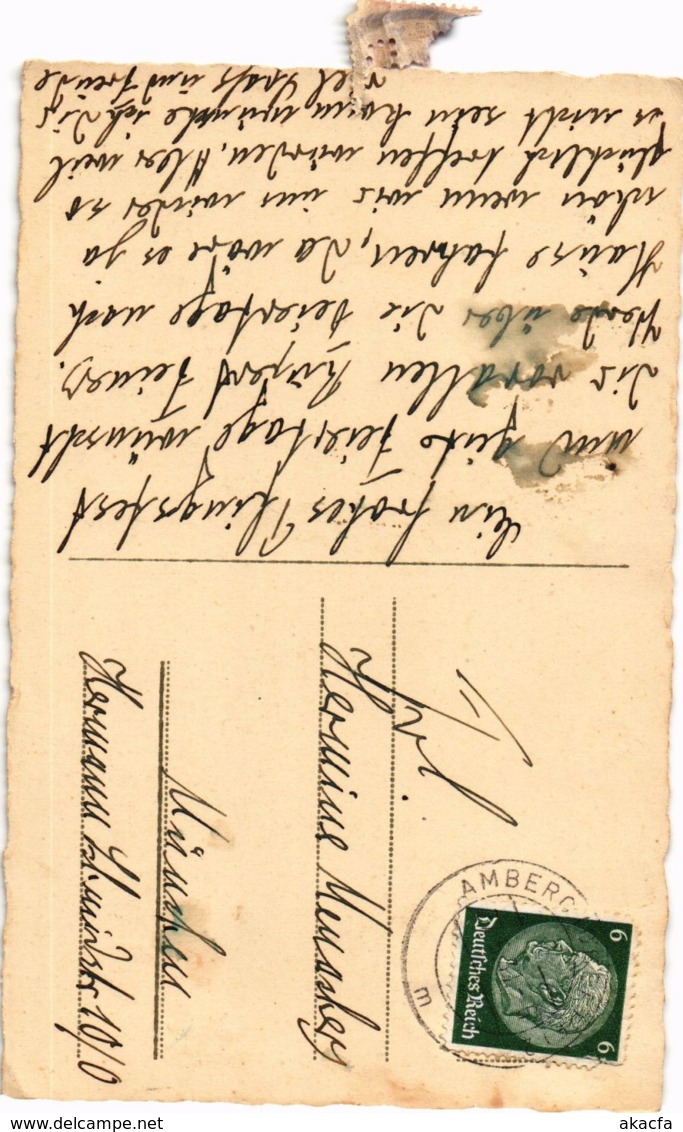 Ein frohes Pfingsfest
und gute Feiertage wünscht
Dir vor allen Rupert Feiner.
Werde über die Feiertage nach
Hause fahren, da wäre es ja
schön wenn wir uns wieder so
glücklich treffen würden. Aber weil
es nicht sein kann wünsche ich Dir
viel Spaß und Freude
Frl.
Hermine
München
Hermann Schmidstr 10/0
AMBERG
Deutsches Reich
6
6
akacfa
delcampe.net